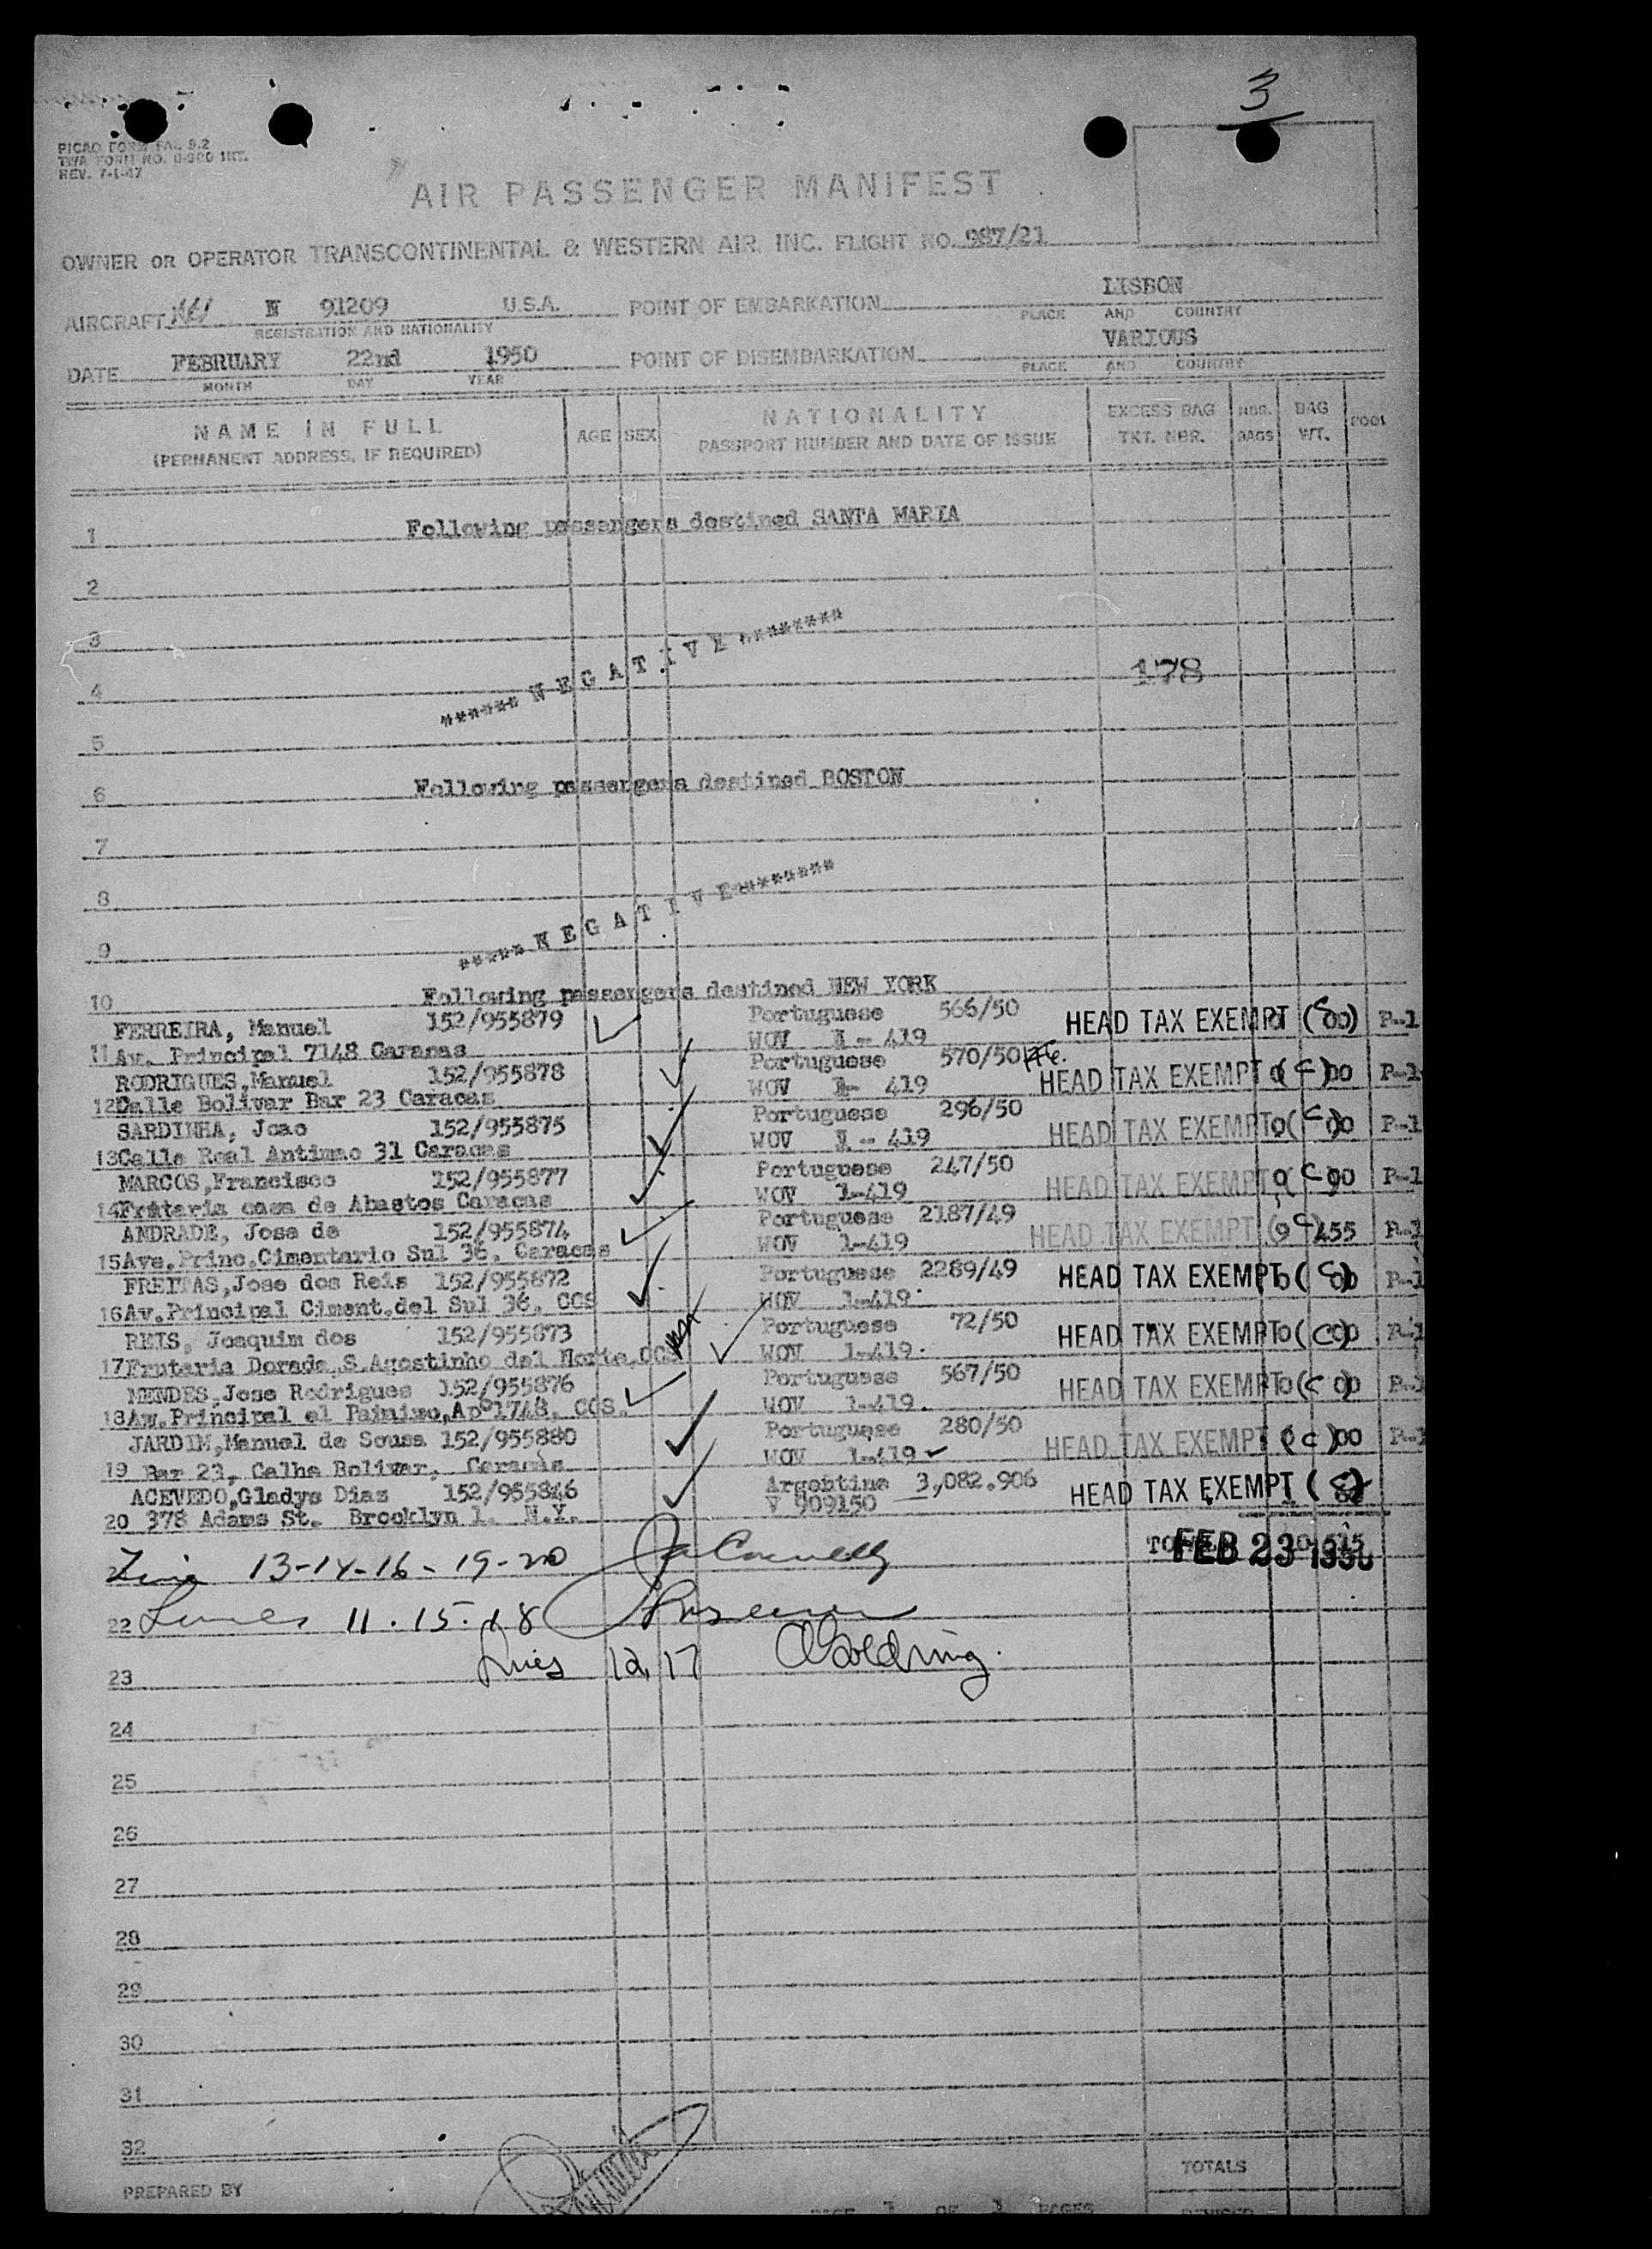 3
PICAO FORM FAL 9.2
TWA FORM NO. INT.
REV. 7-1-47
AIR PASSENGER MANIFEST
OWNER OR OPERATOR TRANSCONTINENTAL & WESTERN AIR. INC. FLIGHT NO. 987/21
AIRCRAFT N 91209 U.S.A. POINT OF EMBARKATION LISBON
REGISTRATION AND NATIONALITY PLACE AND COUNTRY
DATE FEBRUARY 22nd 1950 POINT OF DISEMBARKATION VARIOUS
MONTH DAY YEAR PLACE AND COUNTRY
NAME IN FULL AGE SEX NATIONALITY EXCESS BAG NBR. BAG
(PERMANENT ADDRESS, IF REQUIRED) PASSPORT NUMBER AND DATE OF ISSUE TKT. NBR. BAGS WT.
1 Following passengers destined SANTA MARIA
2
3
****** N E G A T I V E ********
4 178
5
6 Following passengers destined BOSTON
7
8
***** N E G A T I V E ********
9
10 Following passengers destined NEW YORK
FERREIRA, Manuel 152/955879 Portuguese 566/50 HEAD TAX EXEMPT P-1
11 Av. Principal 7148 Caracas WOV I - 419
RODRIGUES,Manuel 152/955878 Portuguese 570/50 HEAD TAX EXEMPT P-1
12 Calle Bolivar Bar 23 Caracas WOV I- 419
SARDINHA, Joao 152/955875 Portuguese 296/50 HEAD TAX EXEMPT P-1
13 Calle Real Antimao 31 Caracas WOV I - 419
MARCOS,Francisco 152/955877 Portuguese 247/50 HEAD TAX EXEMPT P-1
14 Frutaria casa de Abastos Caracas WOV 1-419
ANDRADE, Jose de 152/955874 Portuguese 2187/49 HEAD TAX EXEMPT 455 P-1
15 Ave.Princ.Cimentario Sul 36, Caracas WOV 1-419
FREITAS,Jose dos Reis 152/955872 Portuguese 2289/49 HEAD TAX EXEMPT P-1
16 Av.Principal Ciment.del Sul 36, CCS WOV 1-419
REIS, Joaquim dos 152/955873 Portuguese 72/50 HEAD TAX EXEMPT P-1
17 Frutaria Dorada,S.Agostinho del Norte,CCS WOV 1-419
MENDES,Jose Rodrigues 152/955876 Portuguese 567/50 HEAD TAX EXEMPT P-1
18 Av.Principal el 1748, CCS. WOV 1-419
JARDIM,Manuel de Sousa 152/955880 Portuguese 280/50 HEAD TAX EXEMPT P-1
19 Bar 23, Calhe Bolivar, Caracas WOV 1-419
ACEVEDO,Gladys Diaz 152/955846 Argentine 3,082.906 HEAD TAX EXEMPT
20 378 Adams St. Brooklyn 1. N.Y. V 909150
13-14-16-19-20 FEB 23 1950
22 Lines 11.15.18
23 Lines 12,17 Goldring.
24
25
26
27
28
29
30
31
32
TOTALS
PREPARED BY
PAGE 1 OF 1 PAGES